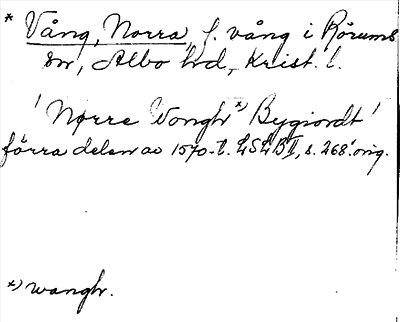 * Vång, Norra, f. vång i Rörums
sn, Albo hd, Krist. l.
'Nørre Wongh*) Bygiordt'
förra delen av 1570-t. LSLB II, s. 268. orig.
*) wangh.